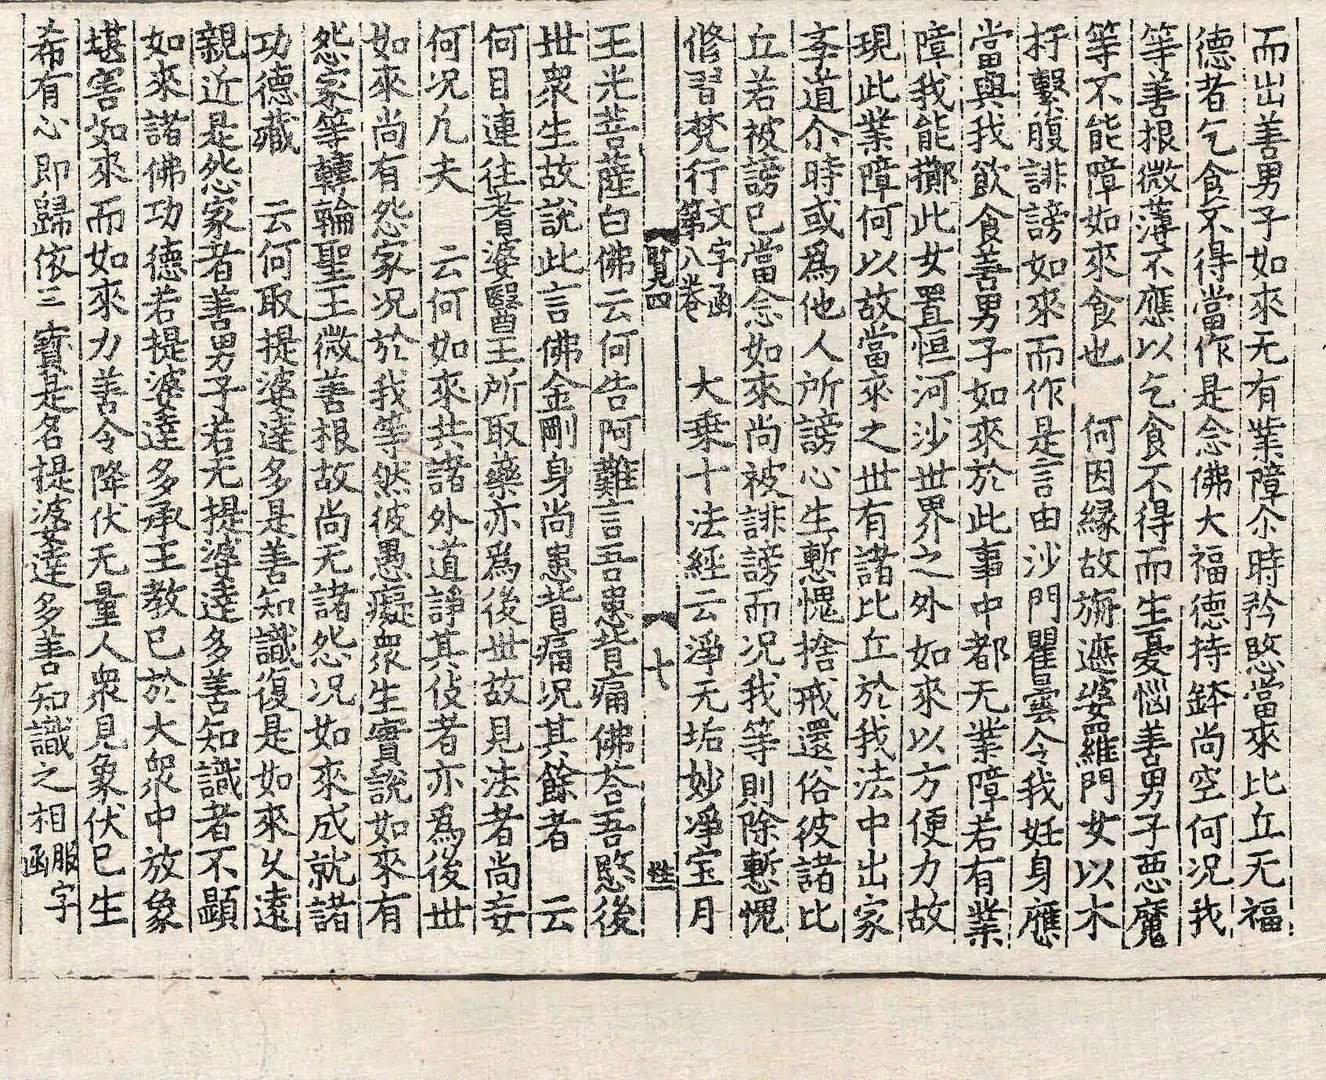 而出善男子如來无有業障尒時矜愍當來比丘无福
德者乞食不得當作是念佛大福德持鉢尚空何況我
等善根微薄不應以乞食不得而生憂惱善男子惡魔
等不能障如來食也 何因緣故旃遮婆羅門女以木
杅繫腹誹謗如來而作是言由沙門瞿曇令我妊身應
當與我飲食善男子如來於此事中都无業障若有業
障我能擲此女置恒河沙世界之外如來以方便力故
現此業障何以故當來之世有諸比丘於我法中出家
李道尒時或爲他人所謗心生慙愧捨戒還俗彼諸比
丘若被謗已當念如來尚被誹謗而況我等則除慙愧
修習梵行文字函第八卷 大乗十法經云淨无垢妙淨宝月
覧四 十 性
王光菩薩白佛云何告阿難言吾患背痛佛荅吾愍後
世衆生故說此言佛金剛身尚患背痛況其餘者 云
何目連往耆婆毉王所取藥亦爲後世故見法者尚妄
何况凢夫 云何如來共諸外道諍其伇者亦爲後世
如來尚有怨家況於我等然彼愚癡衆生實說如來有
怨家等轉輪聖王微善根故尚无諸怨况如來成就諸
功德藏 云何取提婆達多是善知識復是如來久遠
親近是怨家者善男子若无提婆達多善知識者不顯
如來諸佛功德若提婆達多承王教已於大衆中放象
堪害如來而如來力善令降伏无量人衆見象伏已生
希有心即歸依三寶是名提婆達多善知識之相服字函